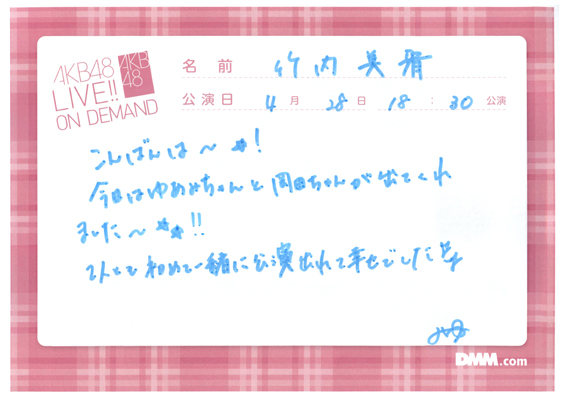 AKB48
LIVE!!
ON DEMAND
AKB
48
名前 竹内美宥
公演日 4月 28日 18:30 公演
こんばんは〜★!
今日はゆあみちゃんと岡田ちゃんが出てくれ
ました〜★★!!
2人とも初めて一緒に公演出れて幸せでした
DMM.com